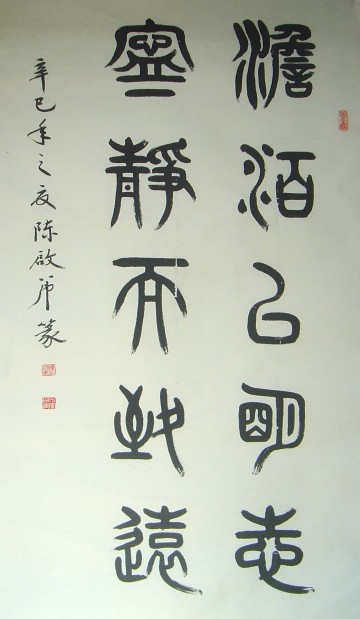 澹泊以明志
寧靜而致遠
辛巳年之夜陈啟帝篆